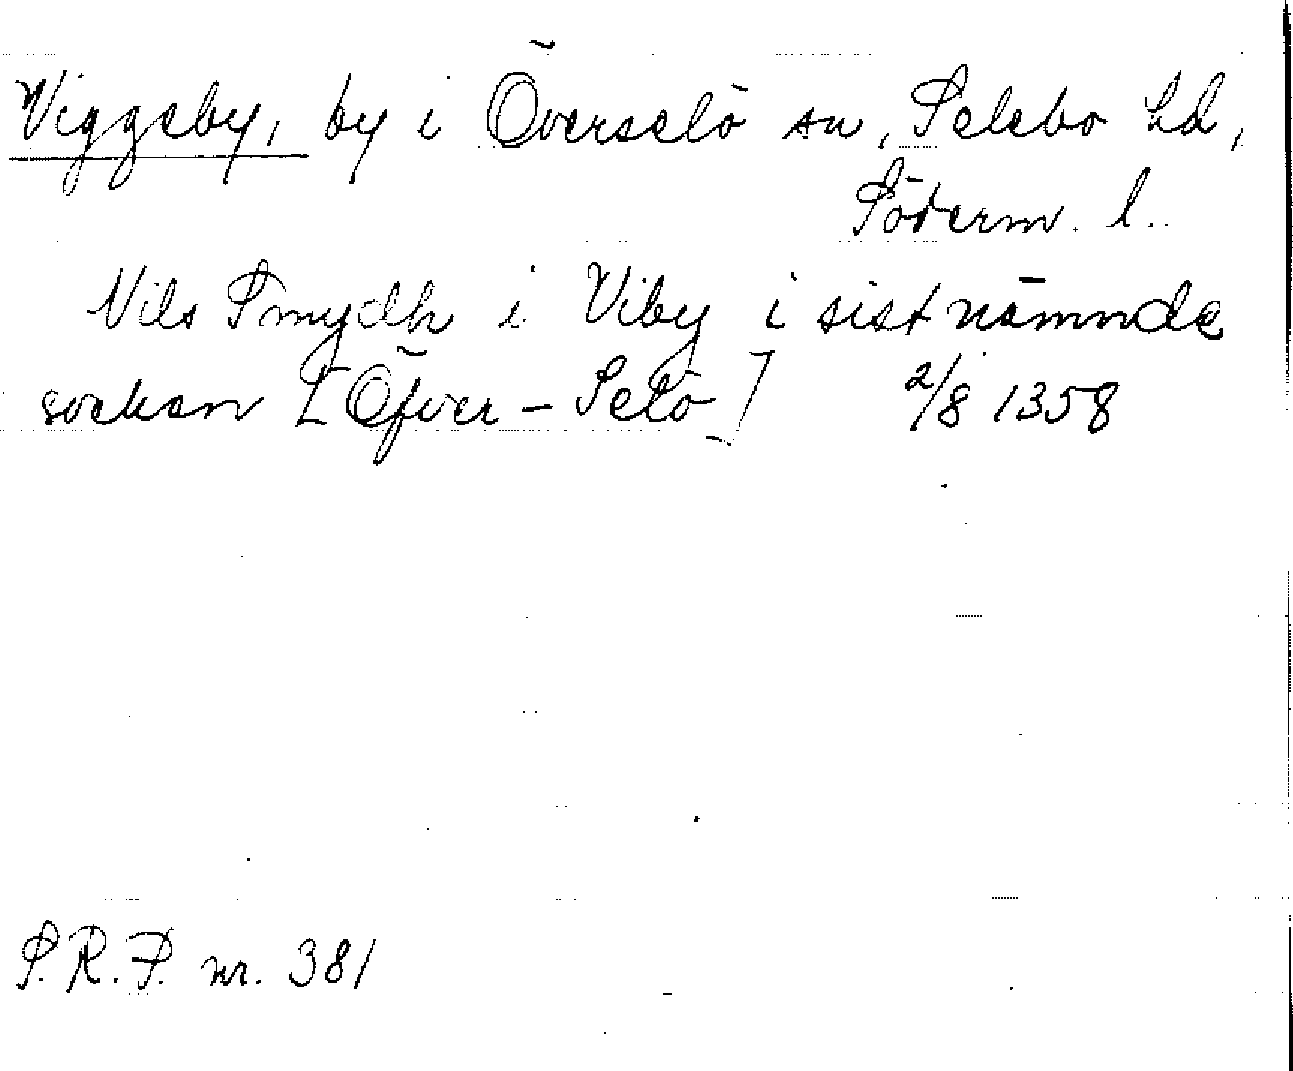 Viggeby, by i Överselö sn, Selebo hd,
Söderm. l.
Nils Smydh i Viby i sistnämnda
socken [Öfver-Selö] 2/8 1358
S.R.P. nr. 381